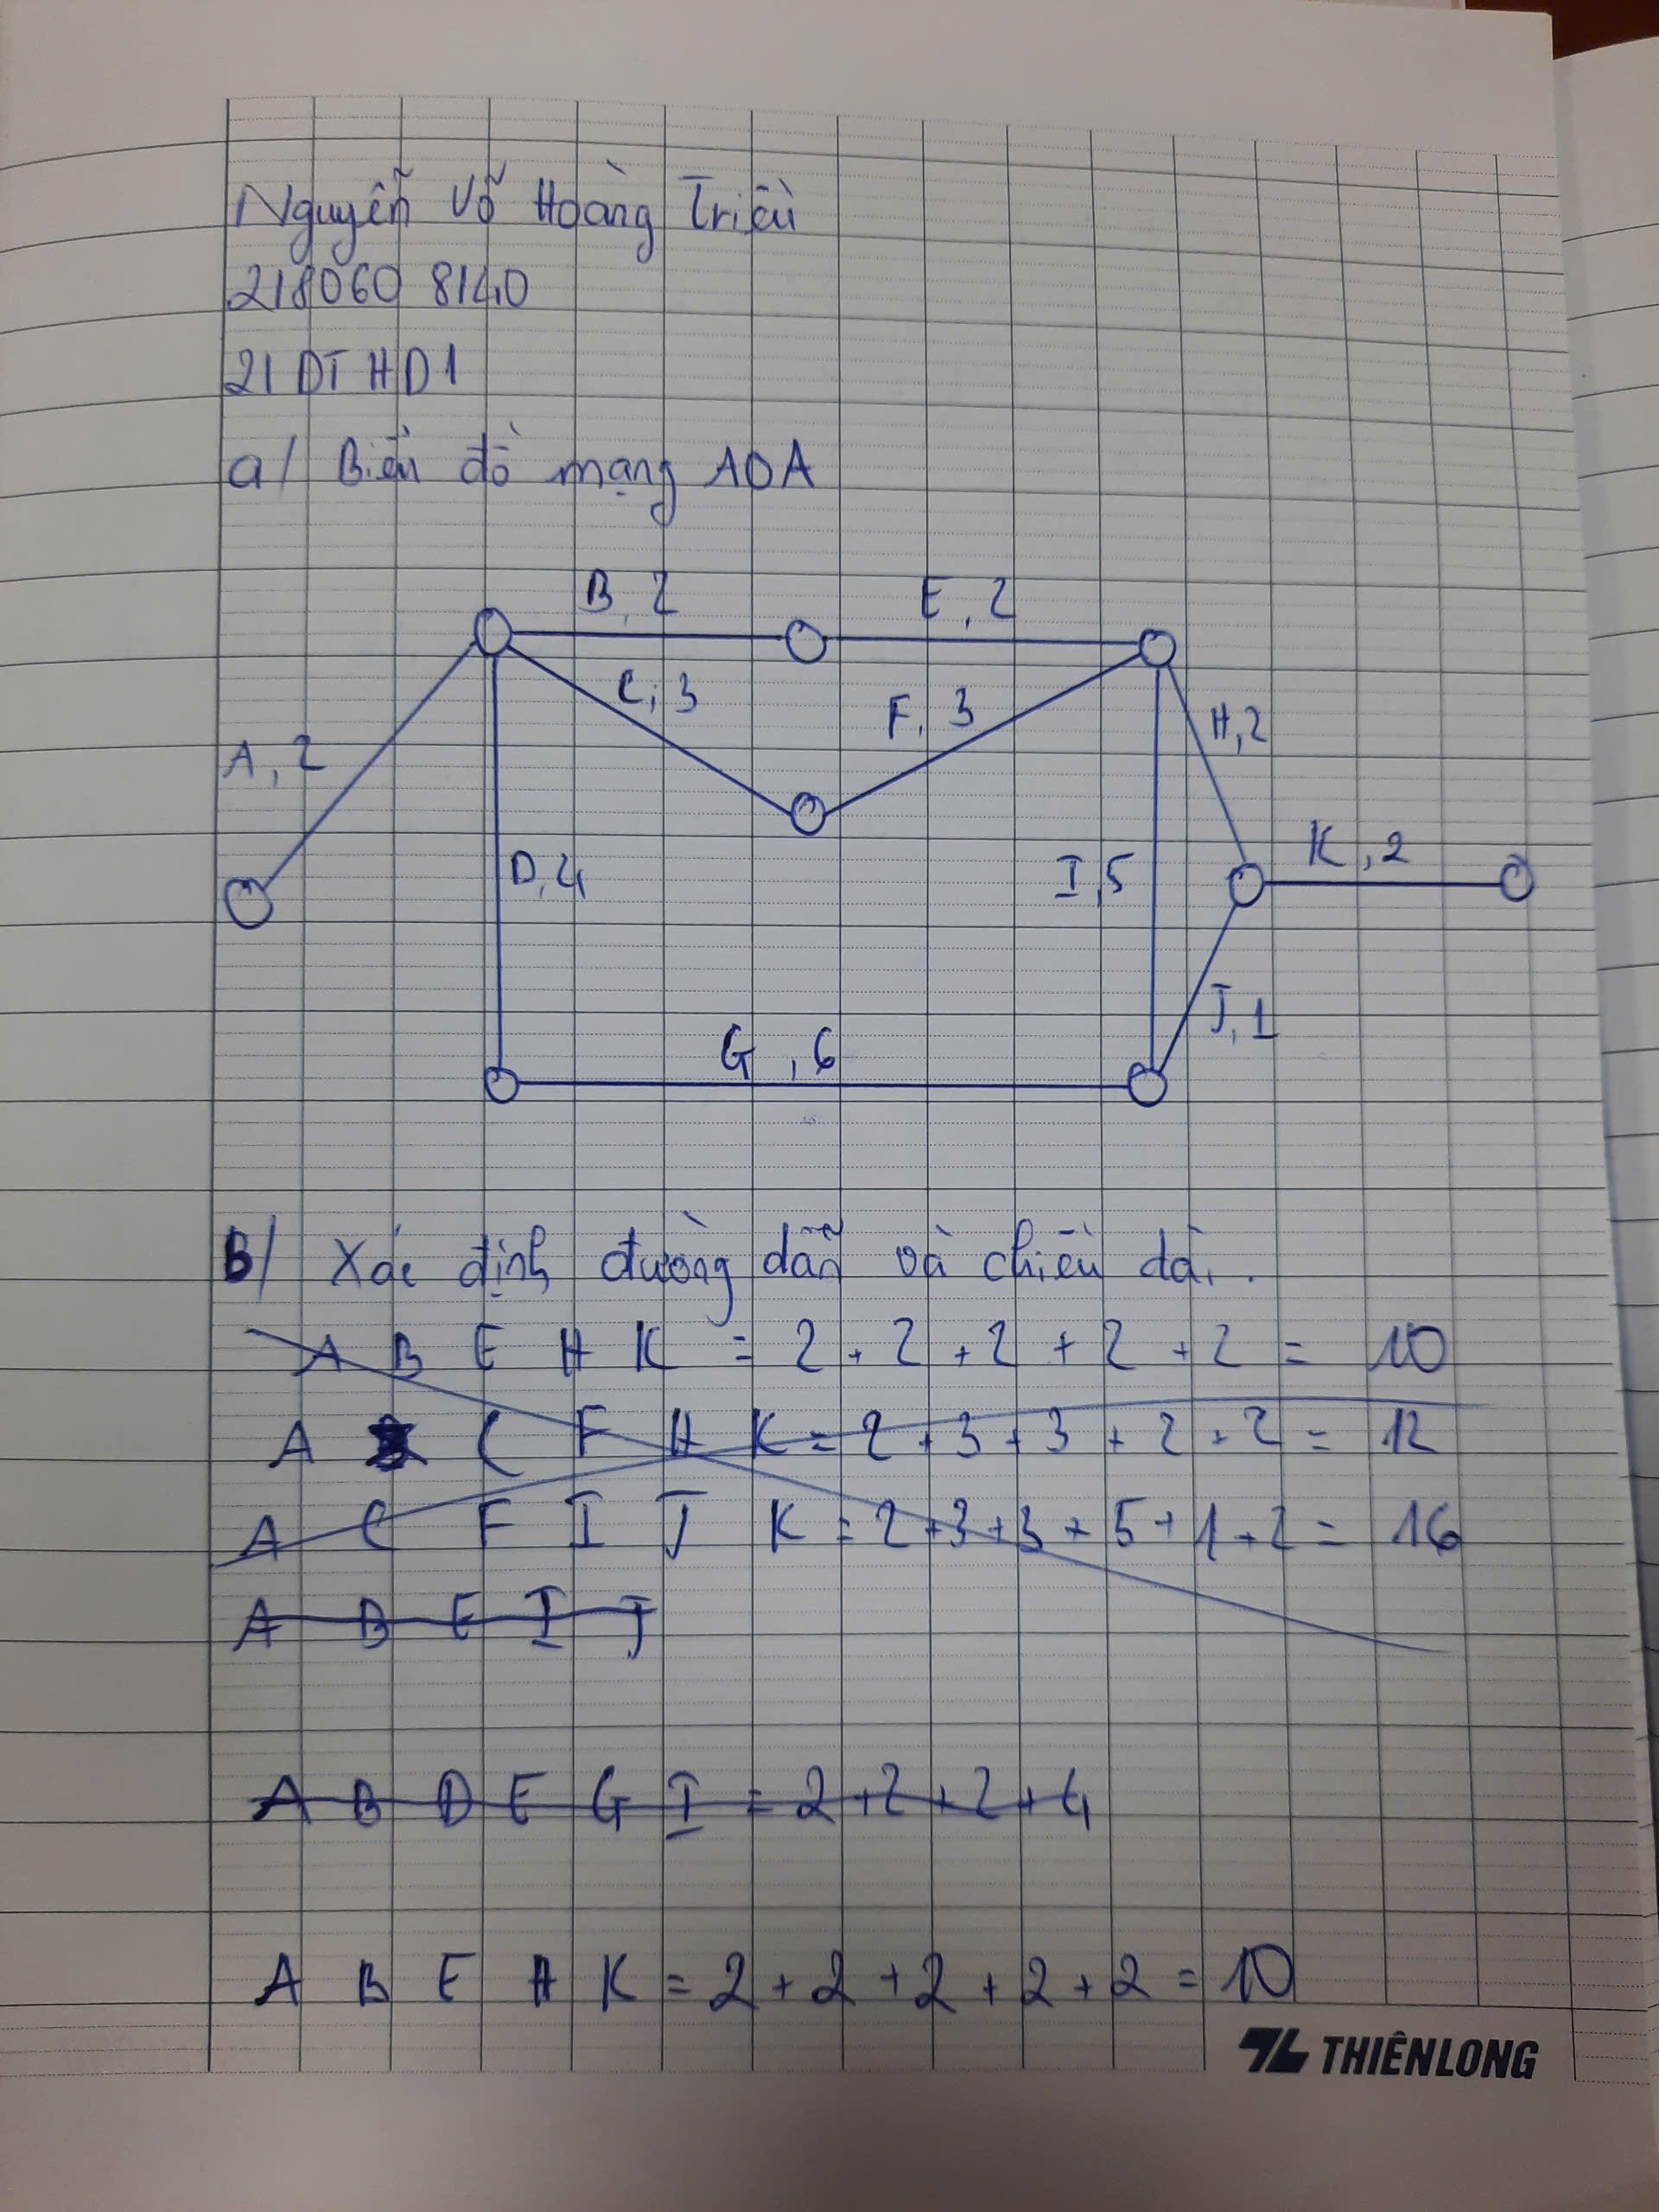 Nguyễn Võ Hoàng Triều
218060 8140
21 DT HD1
a/ Biểu đồ mạng AOA
B, 2
E, 2
C, 3
F, 3
H, 2
A, 2
K, 2
D, 4
I, 5
J, 1
G, 6
B/ Xác định đường dẫn và chiều dài.
A B E H K = 2 + 2 + 2 + 2 + 2 = 10
A C F H K = 2 + 3 + 3 + 2 + 2 = 12
A C F I J K = 2 + 3 + 3 + 5 + 1 + 2 = 16
A B E I J
A B D E G I = 2 + 2 + 2 + 4
A B E H K = 2 + 2 + 2 + 2 + 2 = 10
THIÊN LONG